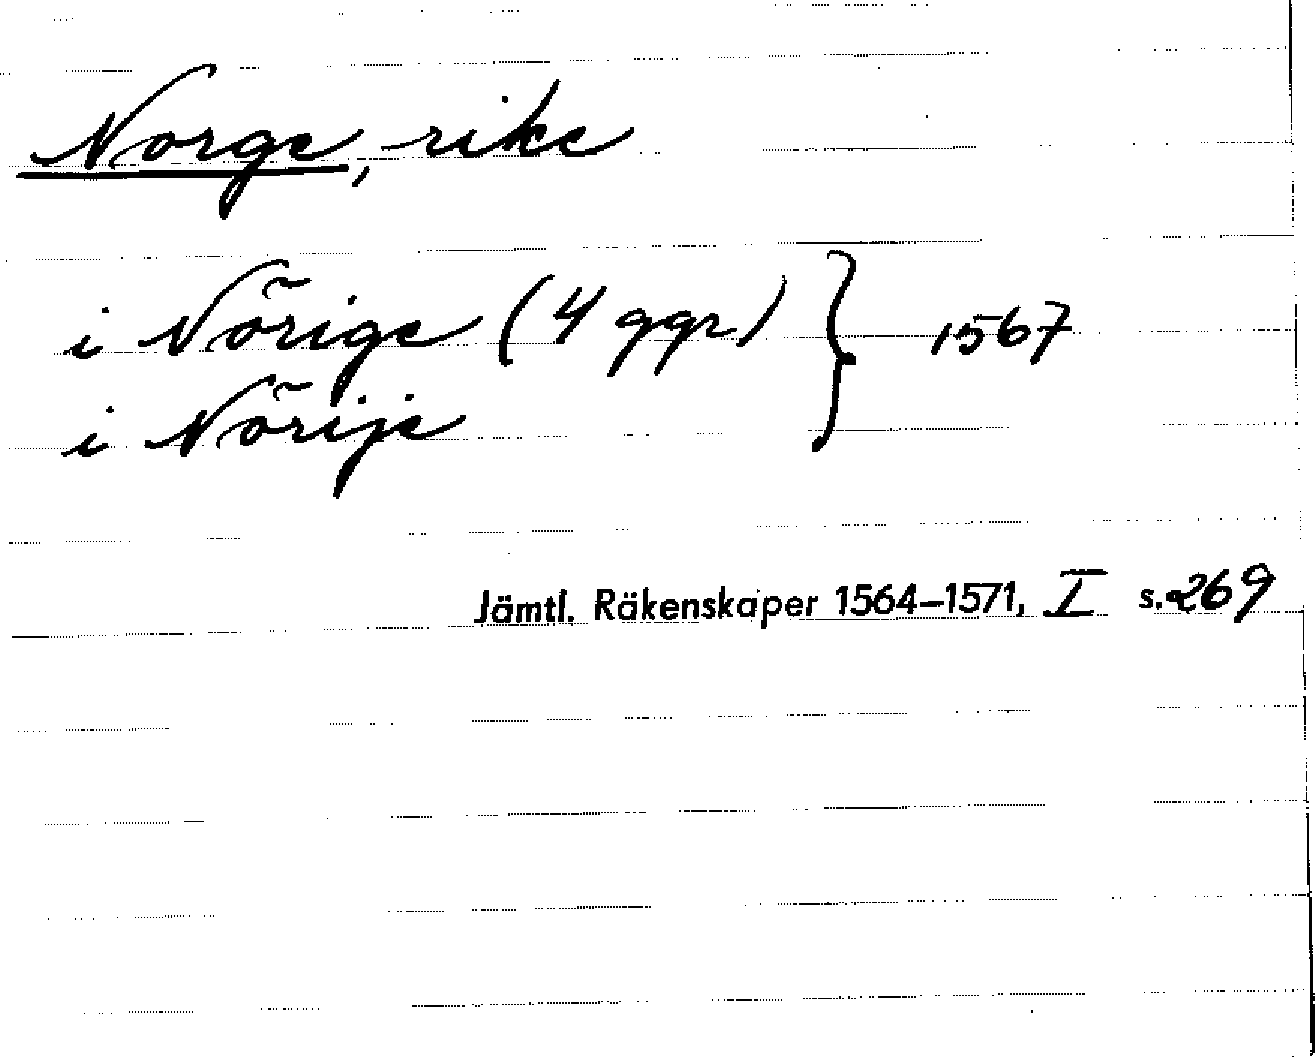 Norge, rike
i Nõrige (4 ggr) } 1567
i Nõrije
Jämtl. Räkenskaper 1564–1571, I s. 269